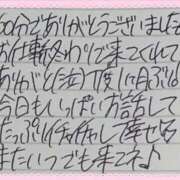 60分でありがとうございました
お仕事終わりに来てくれて
ありがと(泣)1ヶ月ぶり
今日もいっぱいお話して
たっぷりイチャイチャして幸せ
またいつでも来てネ♪